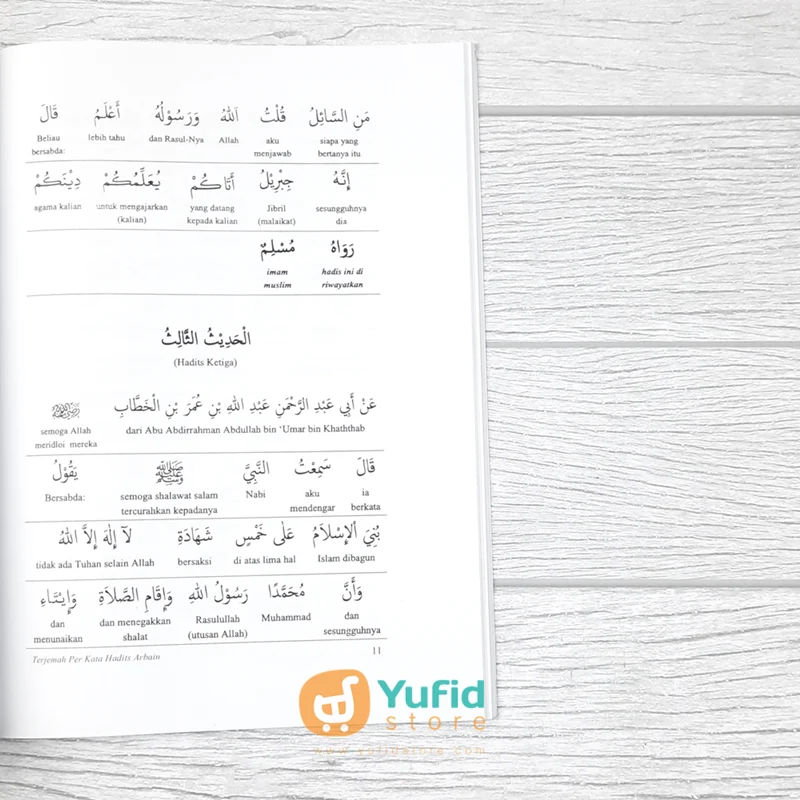 مَنِ السَّائِلُ قُلْتُ اَللهُ وَرَسُوْلُهُ أَعْلَمُ قَالَ
siapa yang bertanya itu aku menjawab Allah dan Rasul-Nya lebih tahu Beliau bersabda:
إِنَّهُ جِبْرِيْلُ أَتَاكُمْ يُعَلِّمُكُمْ دِيْنَكُمْ
sesungguhnya dia Jibril (malaikat) yang datang kepada kalian untuk mengajarkan (kalian) agama kalian
رَوَاهُ مُسْلِمٌ
hadis ini di riwayatkan imam muslim
الْحَدِيْثُ الثَّالِثُ
(Hadits Ketiga)
عَنْ أَبِي عَبْدِ الرَّحْمَنِ عَبْدِ اللهِ بْنِ عُمَرَ بْنِ الْخَطَّابِ
dari Abu Abdirrahman Abdullah bin ‘Umar bin Khaththab semoga Allah meridloi mereka
قَالَ سَمِعْتُ النَّبِيَّ ﷺ يَقُوْلُ
ia berkata aku mendengar Nabi semoga shalawat salam tercurahkan kepadanya Bersabda:
بُنِيَ اْلإِسْلاَمُ عَلَى خَمْسٍ شَهَادَةِ لاَ إِلَهَ إِلاَّ اللهُ
Islam dibagun di atas lima hal bersaksi tidak ada Tuhan selain Allah
وَأَنَّ مُحَمَّدًا رَسُوْلُ اللهِ وَإِقَامِ الصَّلاَةِ وَإِيْتَاءِ
dan sesungguhnya Muhammad Rasulullah (utusan Allah) dan menegakkan shalat dan menunaikan
Terjemah Per Kata Hadits Arbain 11
Yufid
store
www.yufidstore.com